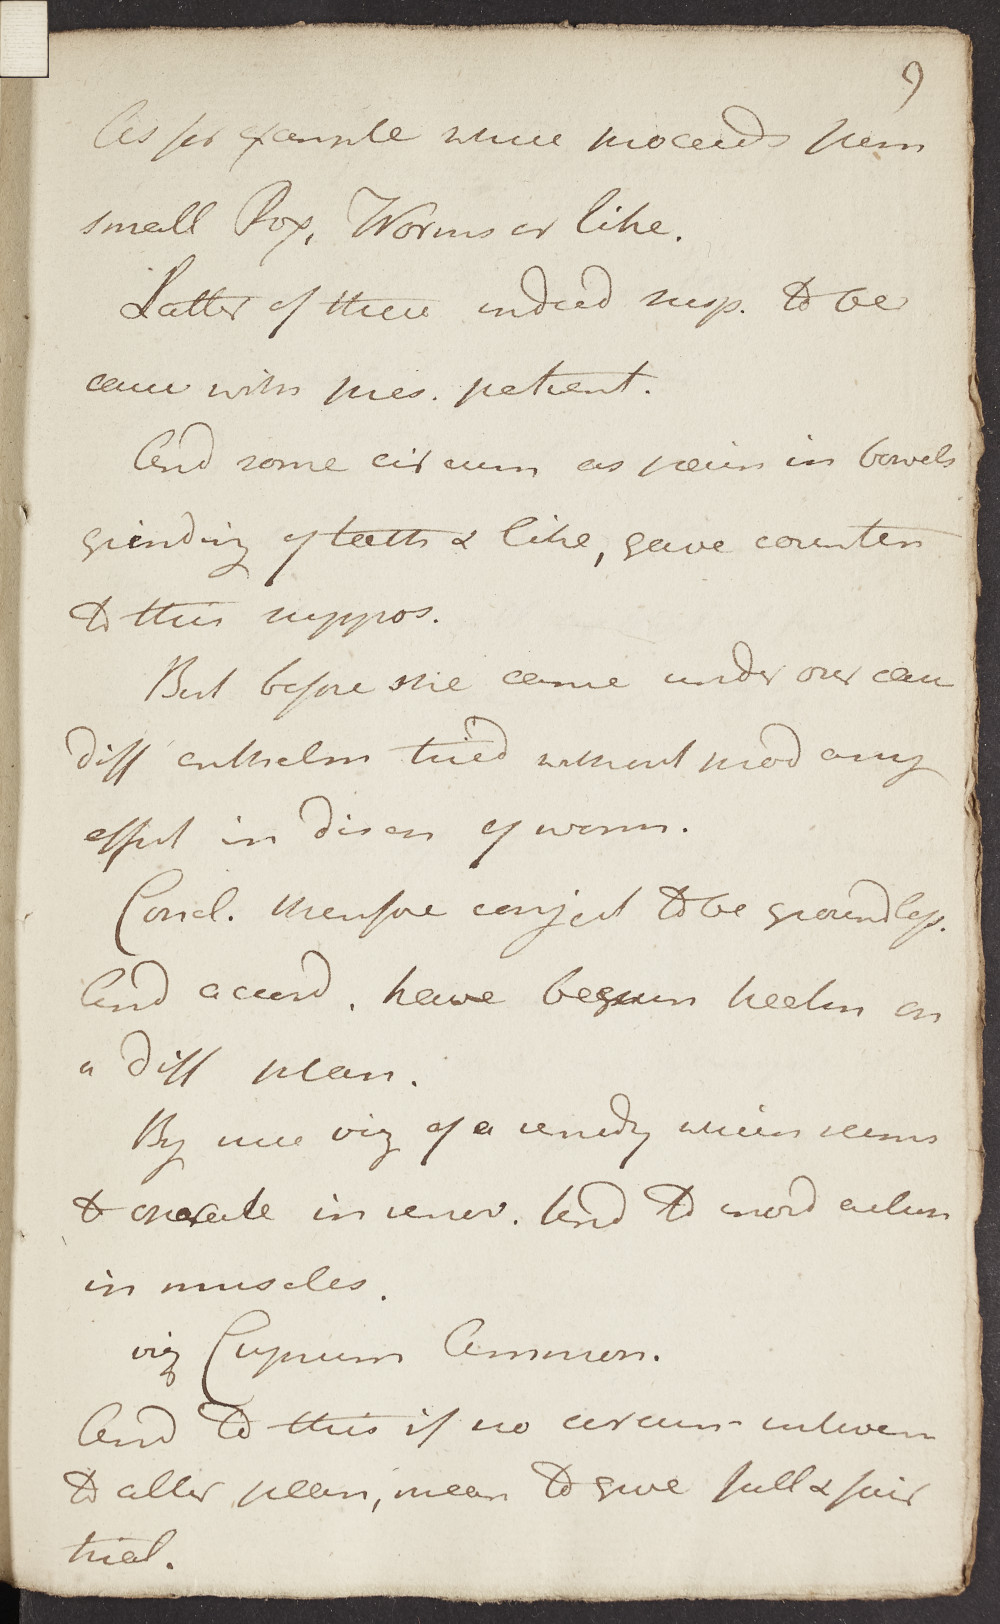 9
As for example where proceeds from
small Pox, Worms or like.
Latter of these indeed susp. to be
cause with pres. patient.
And some circum as pain in bowels
grinding of teeth & like, gave counten
to this suppos.
But before she came under our care
diff anthelm tried without prod any
effect in disch of worm.
Concl. therefore conject to be groundless.
And accord. have begun healin on
a diff plan.
By use viz of a remedy which seems
to operate in nerv. And to mod action
in muscles.
viz Cuprum Ammon.
And to this if no circum interven
to alter plan, mean to give full & fair
trial.